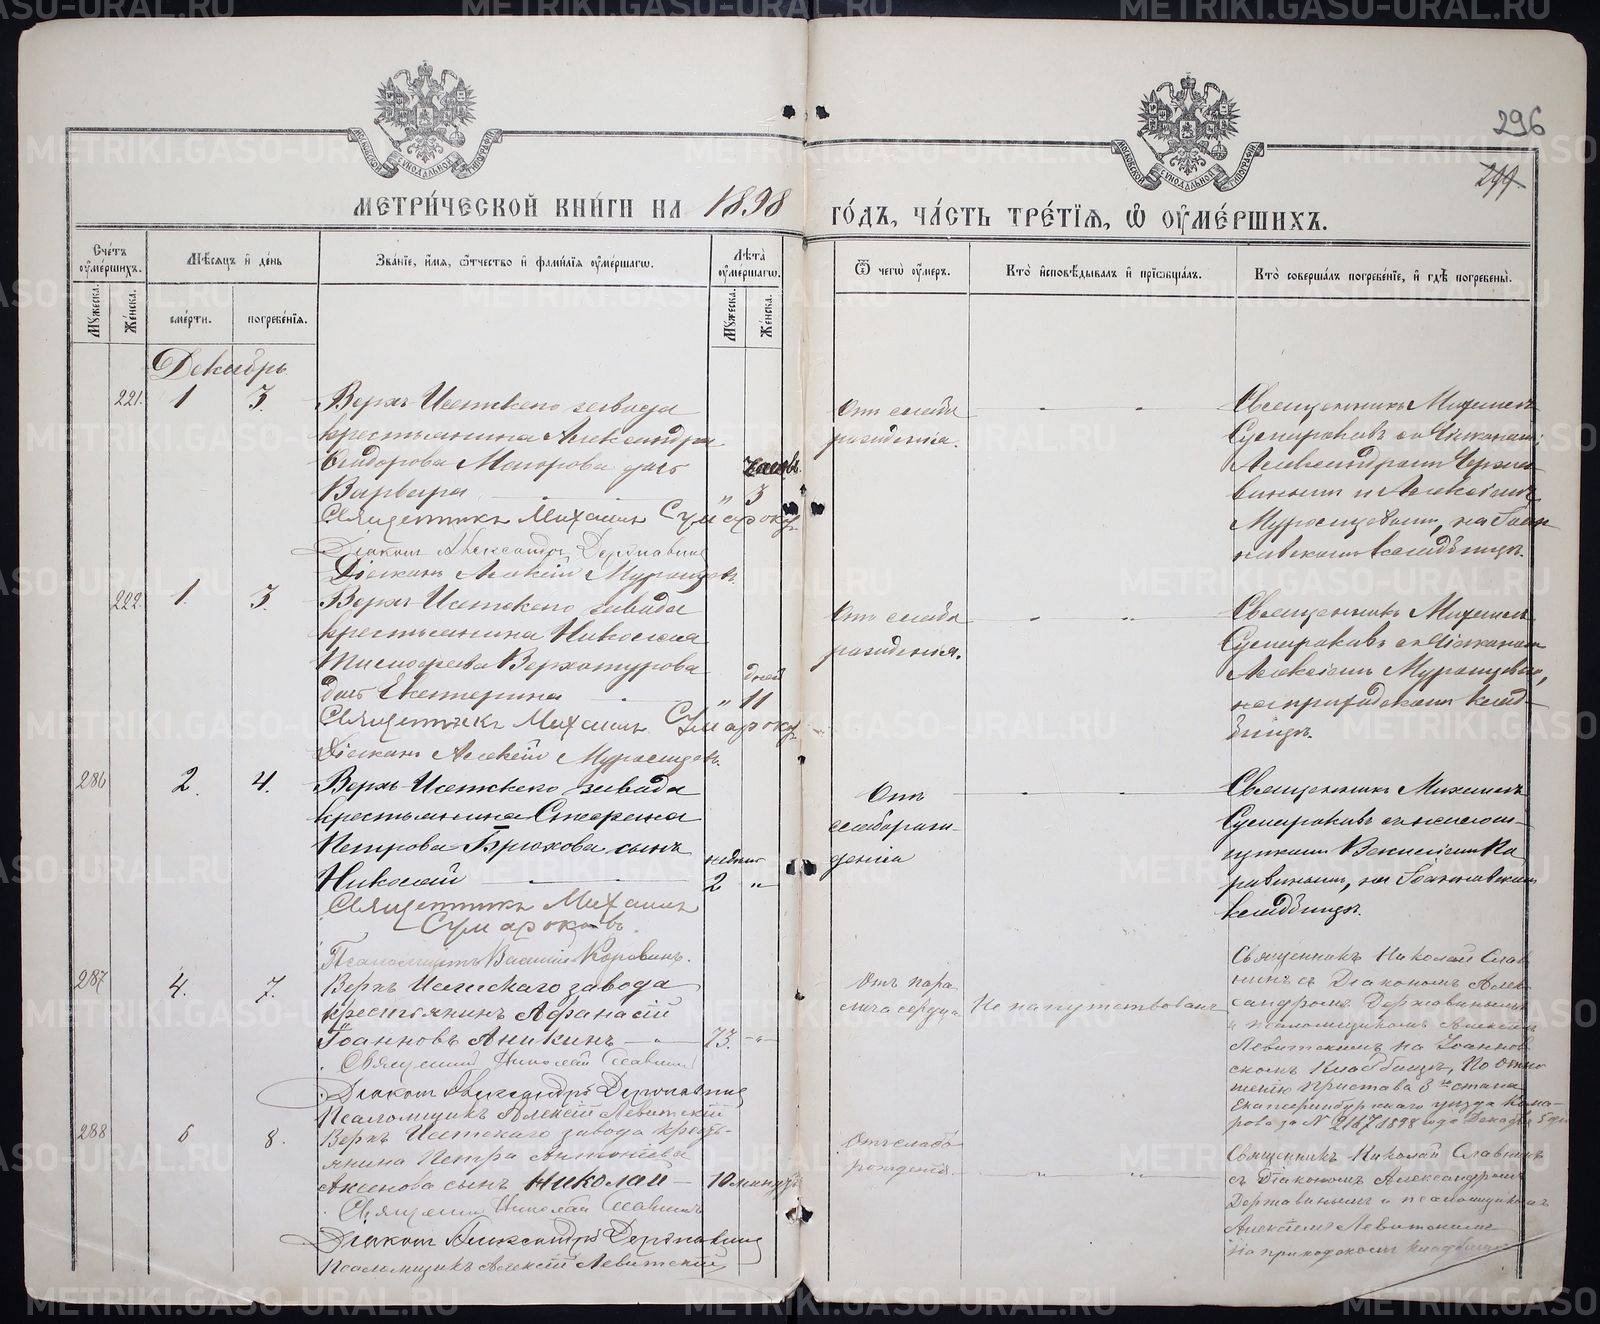 296
299
МЕТРИЧЕСКОЙ КНИГИ НА 1898 ГОДЪ, ЧАСТЬ ТРЕТІЯ, Ѡ ОУМЕРШИХЪ.
Счетъ оумершихъ.
Мужеска.
Женска.
Мѣсяцъ и день
смерти.
погребенія.
Званіе, имя, отчество и фамилія оумершагѡ.
Лѣта оумершагѡ.
Мужеска.
Женска.
Ѿ чегѡ оумеръ.
Кто исповѣдывалъ и пріобщалъ.
Кто совершалъ погребеніе, и гдѣ погребены.
Декабрь
221. 1 3.
Верхъ-Исетскаго завода
крестьянина Александра
Сидорова Махорова дочь
Варвара
часовъ
" 3
Священникъ Михаилъ Сумароковъ
Діаконъ Александръ Державинъ
Діаконъ Алексій Муромцевъ.
Отъ слабо
рожденія.
Священникъ Михаилъ
Сумароковъ съ діаконами:
Александромъ Держа-
винымъ и Алексіемъ
Муромцевымъ, на Іоан-
новскомъ кладбищѣ.
222. 1. 3.
Верхъ-Исетскаго завода
крестьянина Николая
Тимофеева Верхотурова
дочь Екатерина
дней
" 11
Священникъ Михаилъ Сумароковъ
Діаконъ Алексій Муромцевъ.
Отъ слабо
рожденія.
Священникъ Михаилъ
Сумароковъ съ діакономъ
Алексіемъ Муромцевымъ,
на приходскомъ клад-
бищѣ.
286 2. 4.
Верхъ-Исетскаго завода
крестьянина Стефана
Петрова Брюхова сынъ
Николай
недѣли
2 "
Священникъ Михаилъ
Сумароковъ.
Псаломщикъ Василій Коровинъ.
Отъ
слаборож-
денія
Священникъ Михаилъ
Сумароковъ съ псалом-
щикомъ Василіемъ Ко
ровинымъ, на Іоанновскомъ
кладбищѣ.
287 4. 7.
Верхъ Исетскаго завода
крестьянинъ Афанасій
Іоанновъ Аникинъ 73.
Священникъ Николай Славнинъ
Діаконъ Александръ Державинъ
Псаломщикъ Алексій Левитскій
Отъ пара
лича сердца
Не напутствованъ
Священникъ Николай Слав
нинъ съ Діакономъ Алек-
сандромъ Державинымъ
и псаломщикомъ Алексіемъ
Левитскимъ на Іоаннов
скомъ кладбищѣ, По отно
шенію Пристава 3 стана
Екатеринбургскаго уѣзда
288 6 8.
Верхъ Исетскаго завода кресть-
янина Петра Антоніева
Аксенова сынъ Николай 10 минутъ
Священникъ Николай Славнинъ
Діаконъ Александръ Державинъ
Псаломщикъ Алексій Левитскій
Отъ слабо
рожденія
Священникъ Николай Славнинъ
съ Діакономъ Александромъ
Державинымъ и псаломщикомъ
Алексіемъ Левитскимъ
на приходскомъ кладбищѣ
METRIKI.GASO-URAL.RU